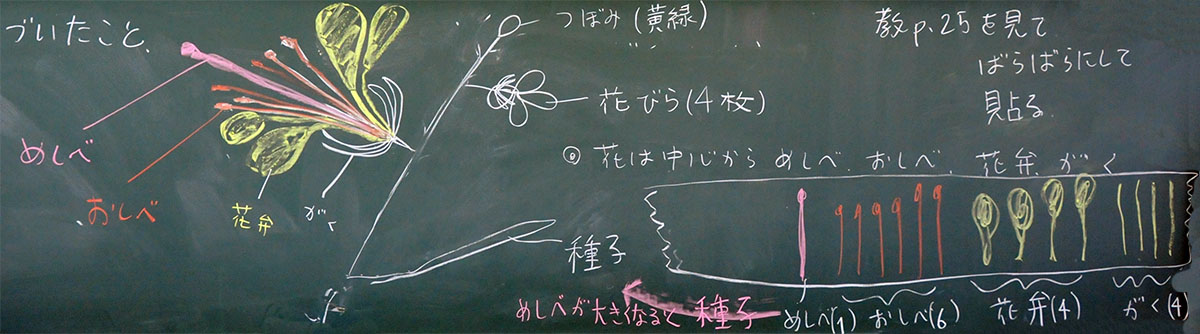 づいたこと、
めしべ
おしべ
花弁
がく
つぼみ(黄緑)
花びら(4枚)
種子
教p.25を見て
ばらばらにして
見占る
◎花は中心から めしべ、おしべ、花弁、がく
めしべ(1) おしべ(6) 花弁(4) がく(4)
めしべが大きくなると 種子